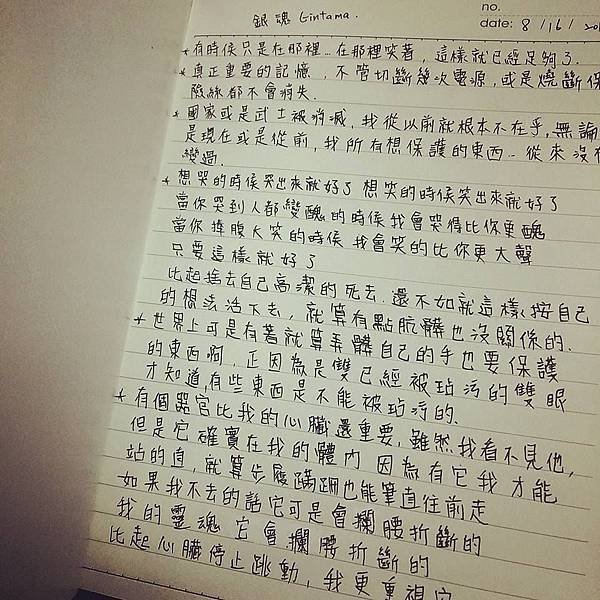 no.
銀魂 Gintama.
date: 8/16/20
*有時候只是在那裡…在那裡笑著，這樣就已經足夠了.
*真正重要的記憶，不管切斷幾次電源，或是燒斷保
險絲都不會消失.
*國家或是武士被消滅，我從以前就根本不在乎，無論
是現在或是從前，我所有想保護的東西…從來沒有
變過.
*想哭的時候哭出來就好了 想笑的時候笑出來就好了
當你哭到人都變醜的時候我會哭得比你更醜
當你捧腹大笑的時候 我會笑的比你更大聲
只要這樣就好了
比起捨去自己高潔的死去. 還不如就這樣按自己
的想法活下去，就算有點骯髒也沒關係的.
*世界上可是有著就算弄髒自己的手也要保護
的東西啊，正因為是雙已經被玷污的雙眼
才知道，有些東西是不能被玷污的.
*有個器官比我的心臟還重要，雖然我看不見他，
但是它確實在我的體內 因為有它我才能
站的直，就算步履蹣跚也能筆直往前走
如果我不去的話它可是會攔腰折斷的
我的靈魂 它會攔腰折斷的
比起心臟停止跳動，我更重視它